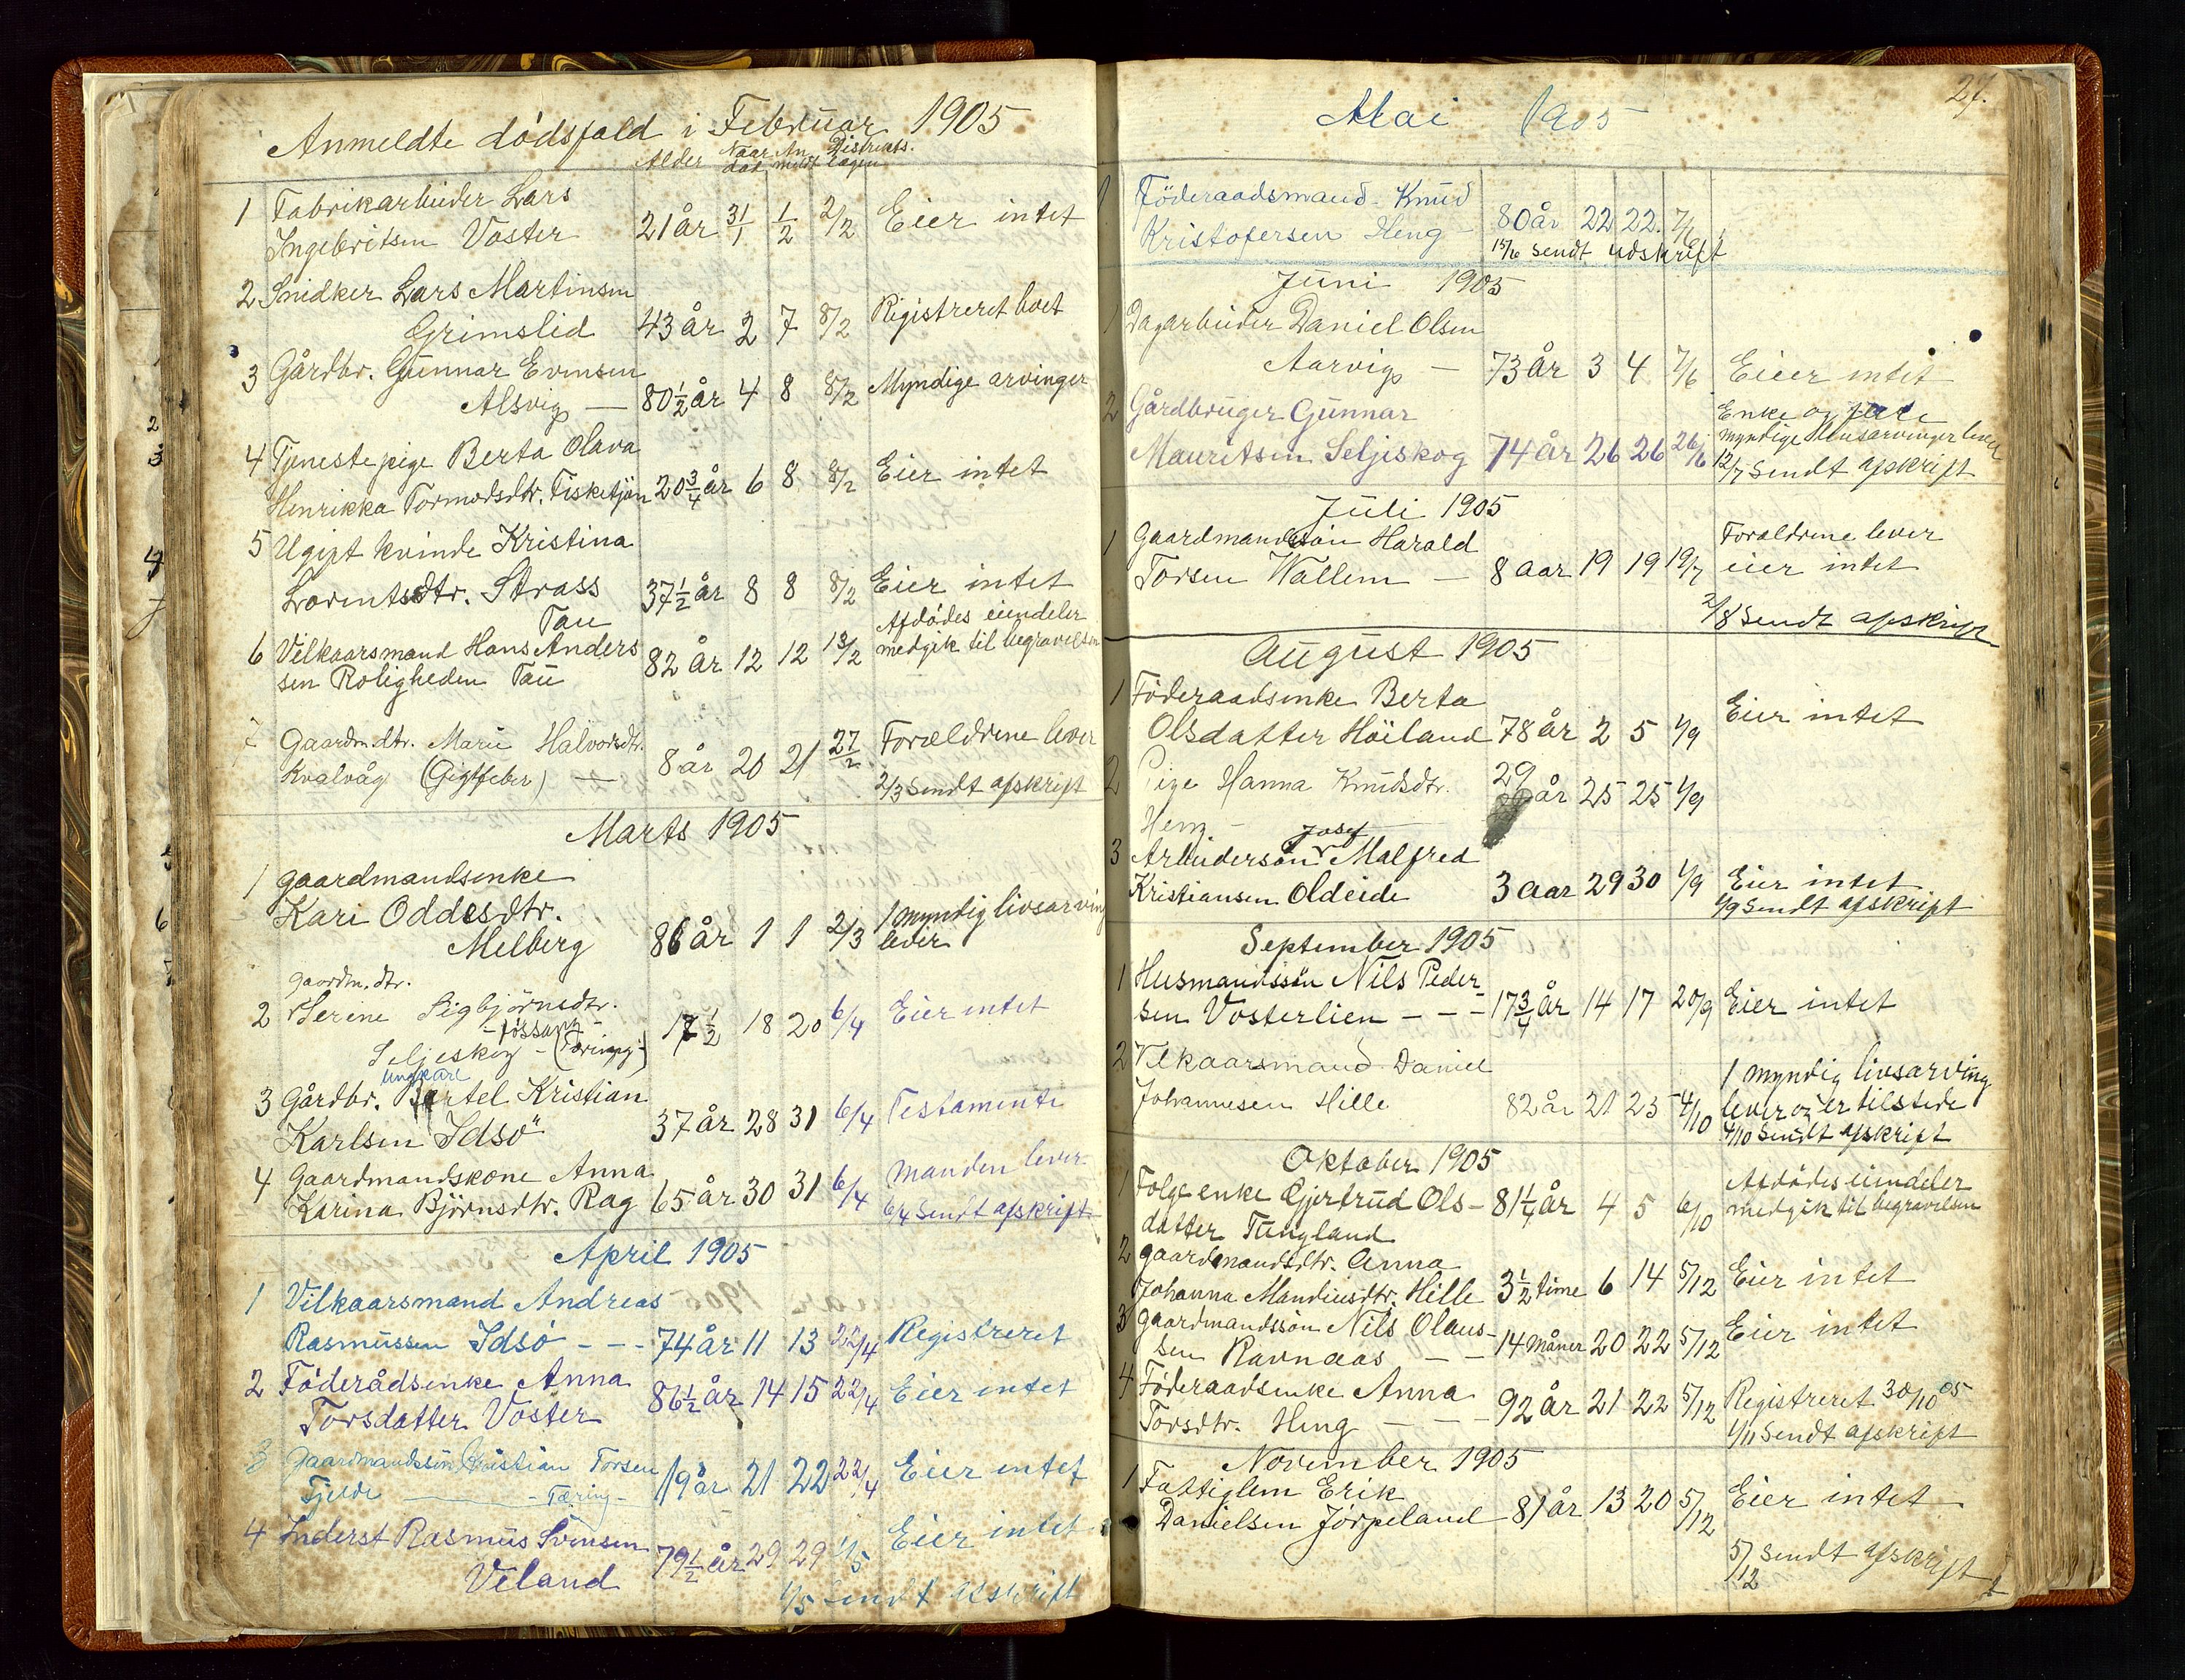 Anmeldte dödsfald i Februar 1905
Alder Naar död An meldt Distrikts. lagen
1 Fabrikarbeider Lars
Ingebritsen Voster 21 år 31/1 1/2 2/2 Eier intet
2 Snidker Lars Martinsen
Grimslid 43 år 2 7 8/2 Rigistreret boet
3 Gårdbr. Gunnar Evensen
Alsvig — 80½ år 4 8 8/2 Myndige arvinger
4 Tjenestepige Berta Olava
Henrikka Tormodsdtr. Fisketjön 20¾ år 6 8 8/2 Eier intet
5 Ugift kvinde Kristina
Lorentsdtr. Strass 37½ år 8 8 8/2 Eier intet
Tau
6 Vilkaarsmand Hans Anders
sen Roligheden Tau 82 år 12 12 13/2 Afdödes eiendeler
medgik til begravelsen
7 Gaardm.dtr. Marie Halvorsdtr.
Kvalvåg (Gigtfeber) — 8 år 20 21 27/2 Forældrene lever
2/3 Sendt afskrift
Marts 1905
1 gaardmandsenke
Kari Oddesdtr.
Melberg 86 år 1 1 2/3 1 myndig livsarving
lever
gaardm.dtr.
2 Serine Sigbjörnsdtr.
- Fössang -
Seljeskog - (Tæring) 17½ 18 20 6/4 Eier intet
ungkarl
3 Gårdbr. Bertel Kristian
Karlsen Idsö 37 år 28 31 6/4 Testamente
4 Gaardmandskone Anna
Karina Björnsdtr. Rag 65 år 30 31 6/4 Manden lever
6/4 Sendt afskrift
April 1905
1 Vilkaarsmand Andreas
Rasmussen Idsö - - - 74 år 11 13 22/4 Registreret
2 Föderådsenke Anna
Torsdatter Voster 86½ år 14 15 22/4 Eier intet
3 Gaardmandssön Kristian Torsen
Fjelde — - Tæring - 19 år 21 22 22/4 Eier intet
4 Inderst Rasmus Svensen
Veland 79½ år 29 29 1/5 Eier intet
1/5 Sendt afskrift
27.
Mai 1905
1 Föderaadsmand Knud
Kristofersen Heng - 80 år 22 22. 7/6
15/6 sendt udskrift
Juni 1905
1 Dagarbeider Daniel Olsen
Aarvig — 73 år 3 4 7/6 Eier intet
2 Gårdbruger Gunnar
Mauritsen Seljiskog 74 år 26 26 26/6 Enke og
myndige Livsarvinger lever
12/7 Sendt afskrift
Juli 1905
1 Gaardmandssön Harald
Torsen Wallem — 8 aar 19 19 19/7 Forældrene lever
eier intet
2/8 Sendt afskrift
August 1905
1 Föderaadsenke Berta
Olsdatter Höiland 78 år 2 5 1/9 Eier intet
2 Pige Hanna Knudsdtr.
Heng - 29 år 25 25 1/9
3 Arbeidersön Josef Malfred
Kristiansen Oldeide 3 aar 29 30 1/9 Eier intet
1/9 Sendt afskrift
September 1905
1 Husmandssön Nils Peder-
sen Vosterlien - - - 17¾ år 14 17 20/9 Eier intet
2 Vilkaarsmand Daniel
Johannesen Hille 82 år 21 25 4/10 1 myndig livsarving
lever og er tilstede
4/10 Sendt afskrift
Oktober 1905
1 Folgeenke Gjertrud Ols-
datter Tungland 81¼ år 4 5 6/10 Afdödes eiendeler
medgik til begravelsen
2 gaardmandsdtr. Anna
Johanna Mandiusdtr. Hille 3½ time 6 14 5/12 Eier intet
3 Gaardmandssön Nils Olaus-
sen Ravnaas — — 14 måner 20 22 5/12 Eier intet
4 Föderaadsenke Anna
Torsdtr. Heng - - - 92 år 21 22 5/12 Registreret 30/10 05
1/11 Sendt afskrift
November 1905
1 Fattiglem Erik
Danielsen Jörpeland 81 år 13 20 5/12 Eier intet
5/12 Sendt afskrift